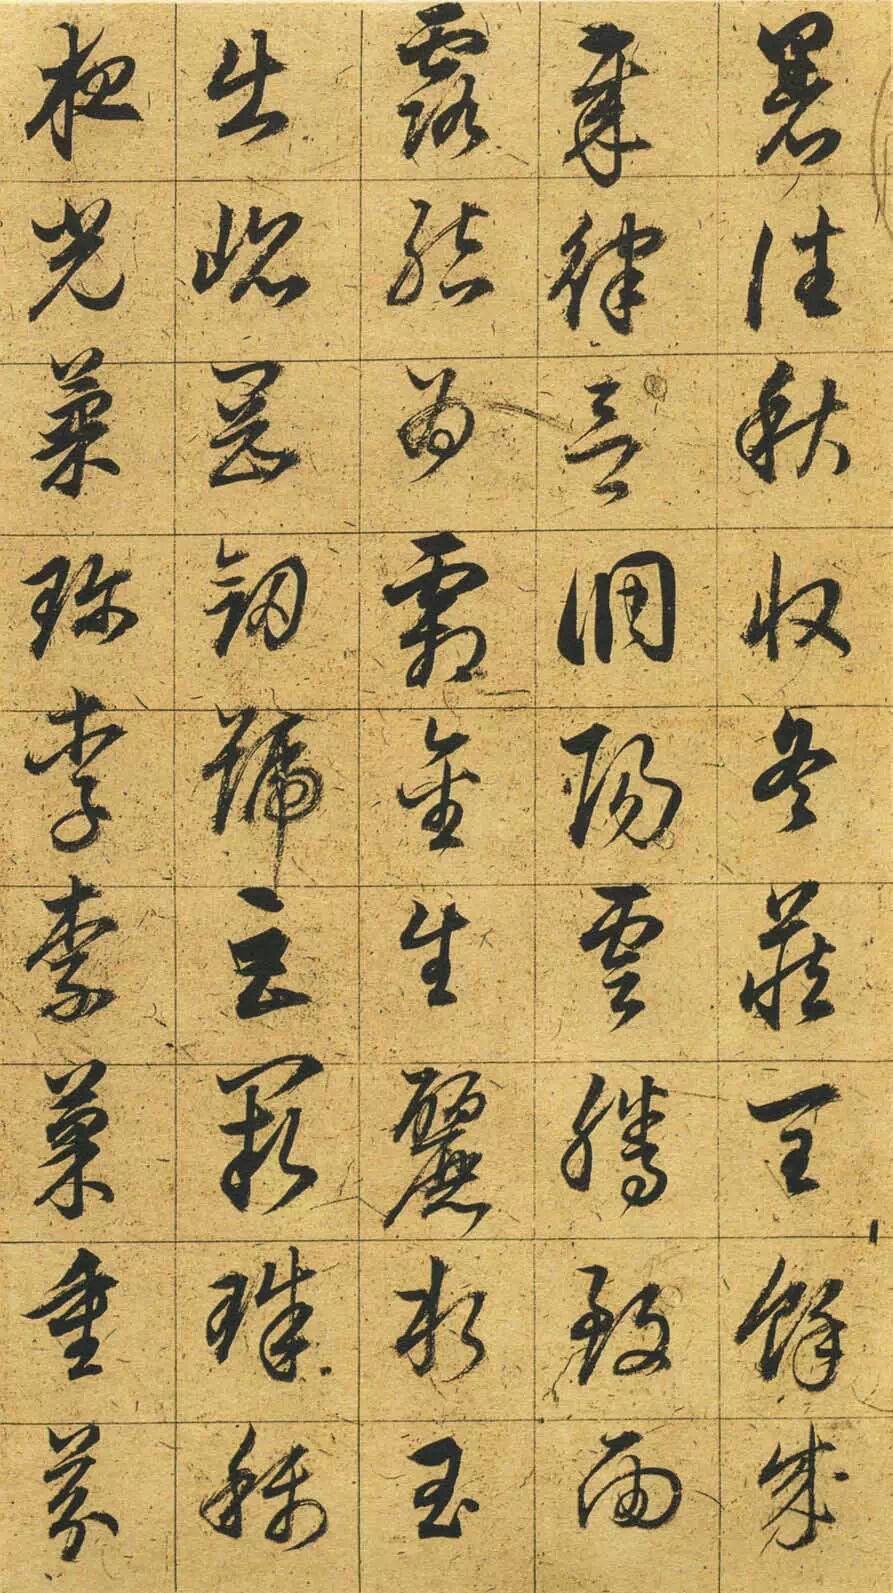 暑往秋收冬藏閏餘成
歲律呂調陽雲騰致雨
露結為霜金生麗水玉
出崐岡劔號巨闕珠稱
夜光菓珎李柰菜重芥